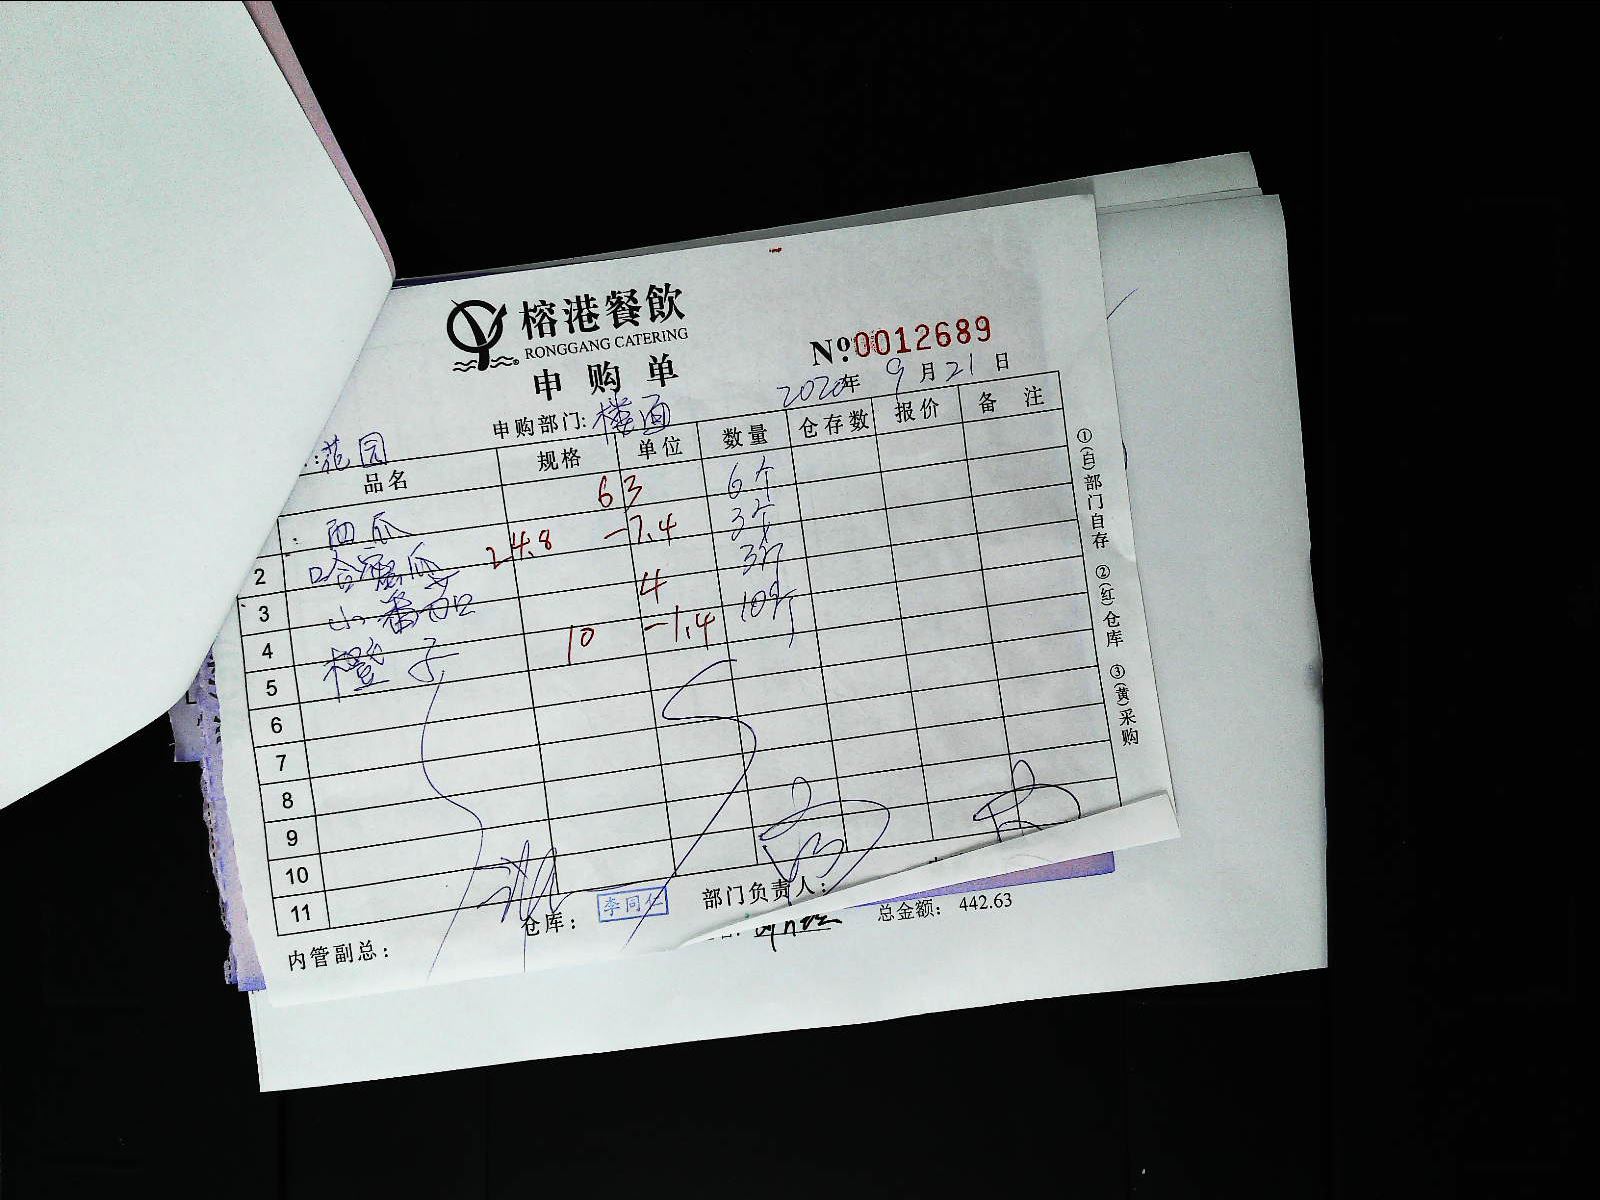 榕港餐飲
RONGGANG CATERING
申购单
№:0012689
2020年 9月21日
申购部门: 楼面
:花园
品名 规格 单位 数量 仓存数 报价 备注
西瓜 63 6个
2 哈密瓜 24.8 -7.4 3个
3 小番茄 4 3斤
4 橙子 10 -1.4 10个
5
6
7
8
9
10
11
内管副总:
仓库: 李同仁
部门负责人:
总金额: 442.63
①(白)部门自存 ②(红)仓库 ③(黄)采购